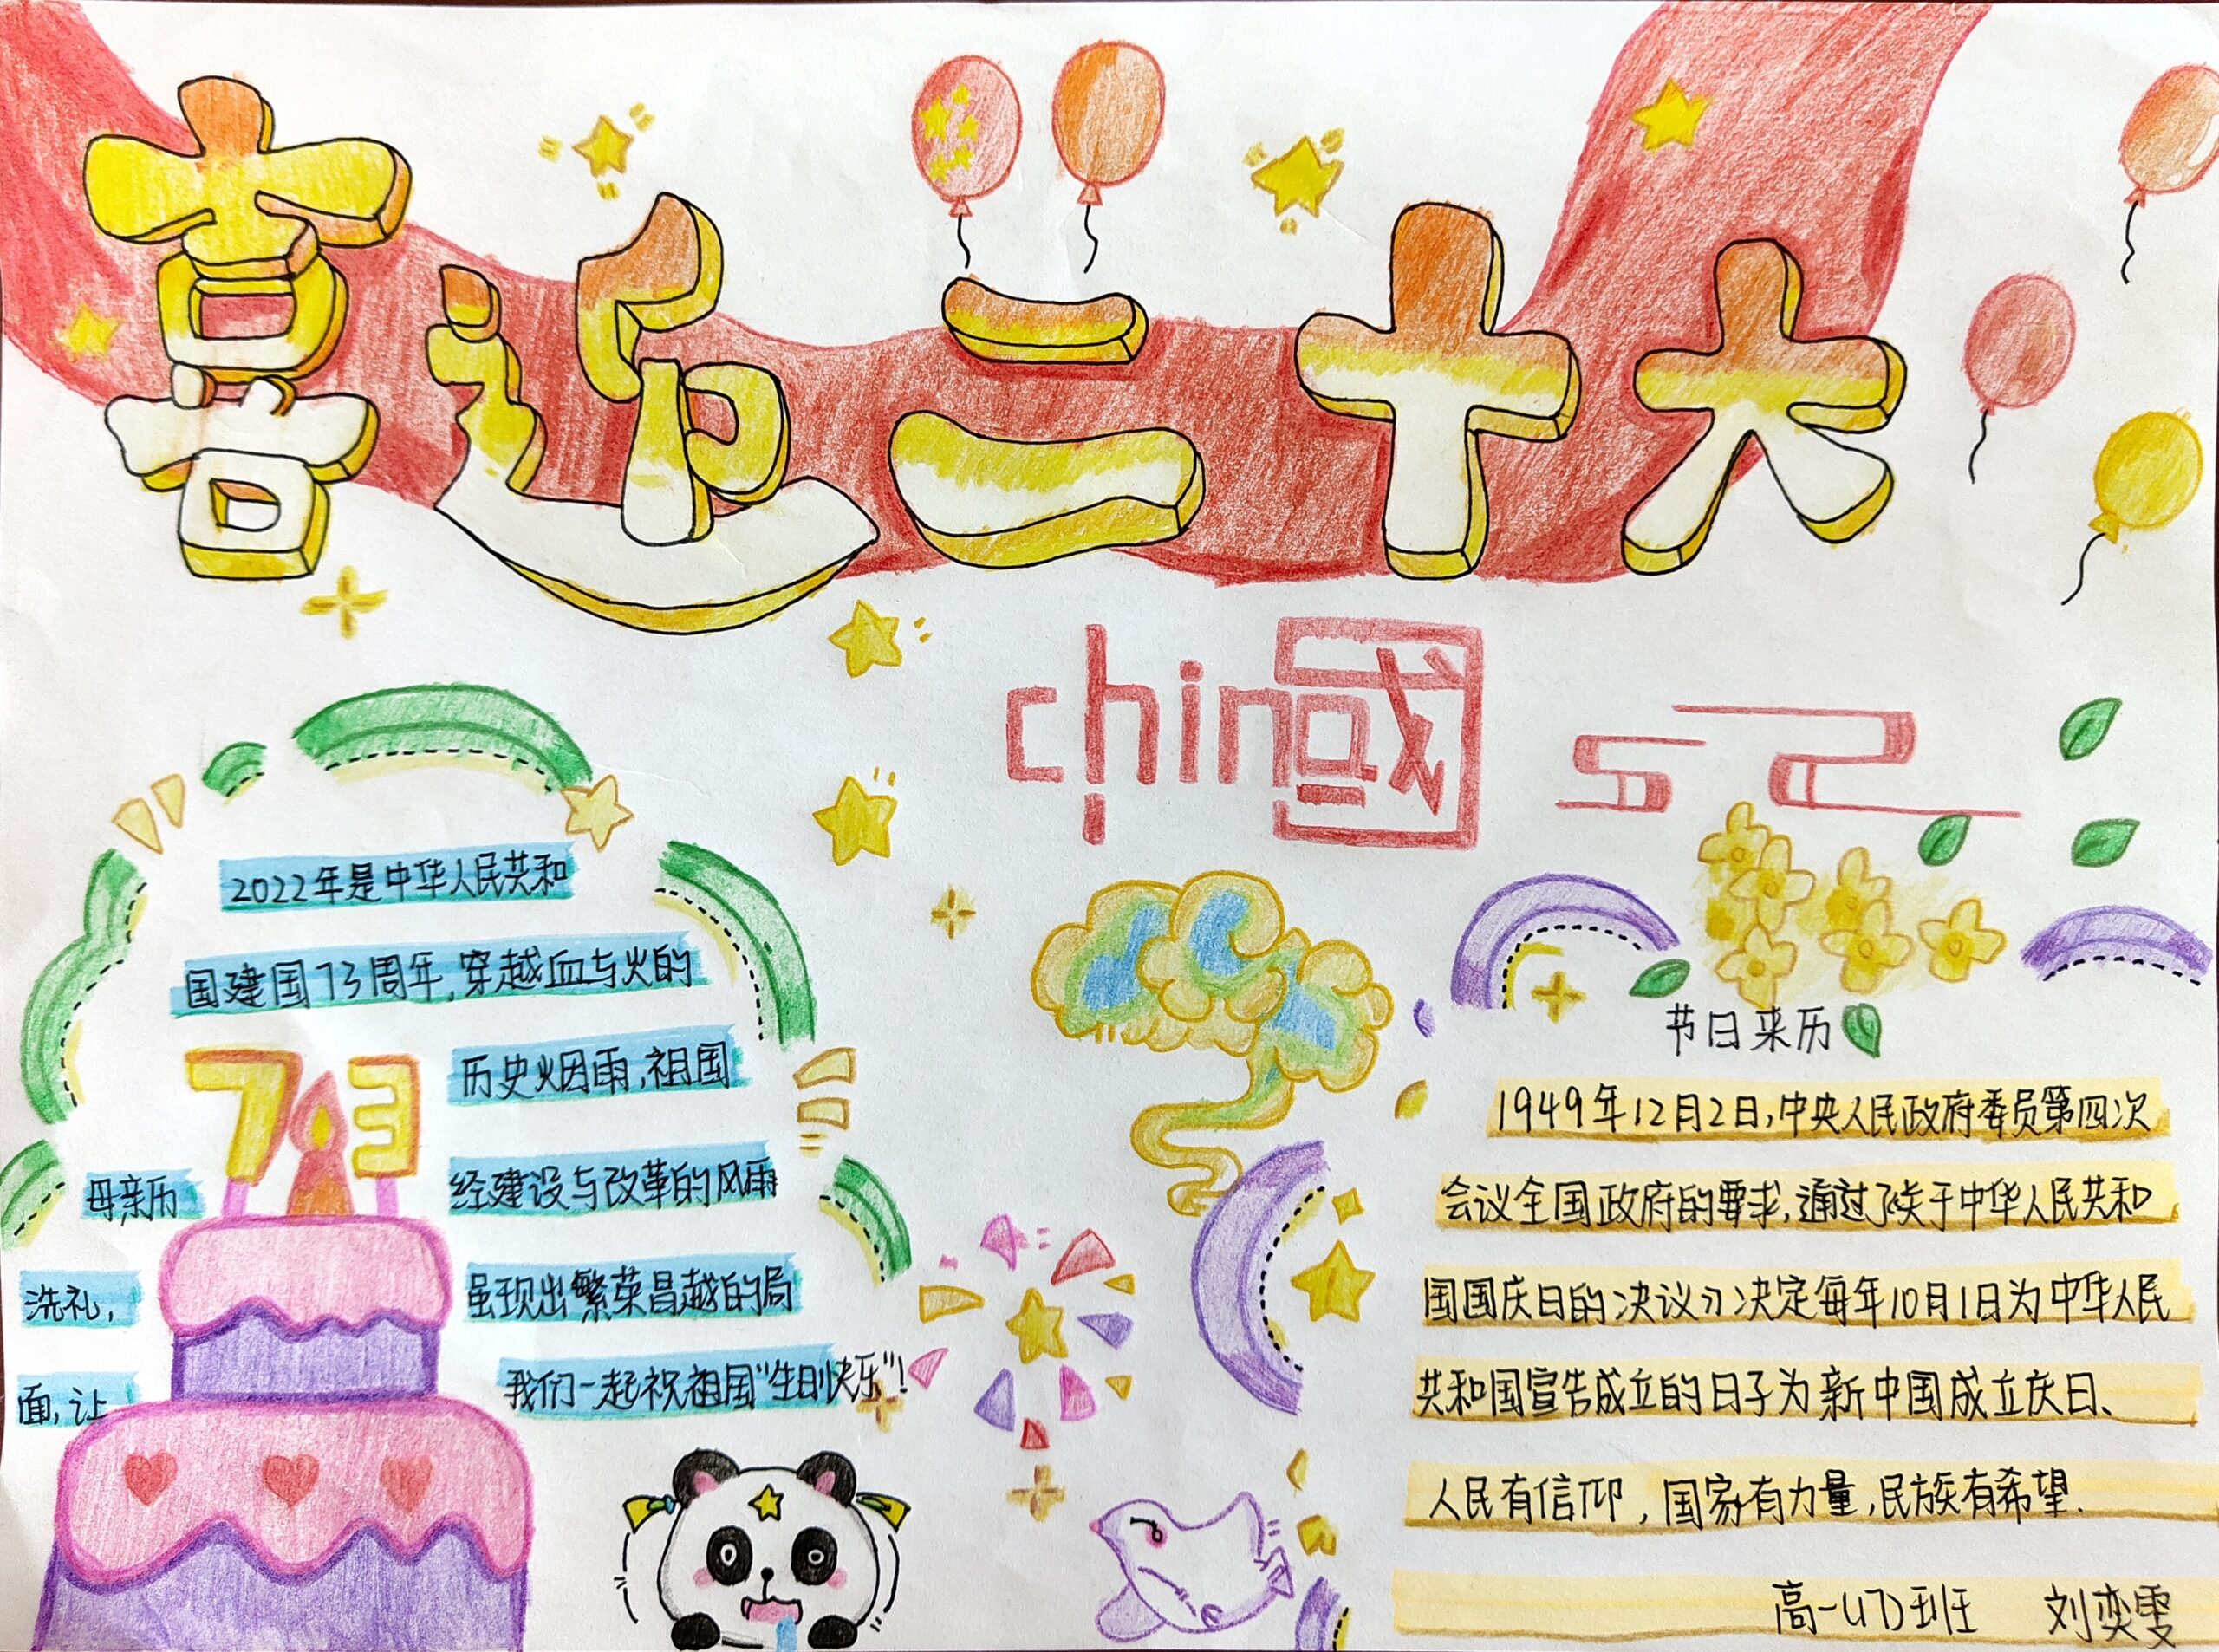 喜迎二十大
chin國
2022年是中华人民共和
国建国73周年,穿越血与火的
历史烟雨,祖国
73
母亲历 经建设与改革的风雨
洗礼, 呈现出繁荣昌盛的局
面,让 我们一起祝祖国“生日快乐”!
节日来历
1949年12月2日,中央人民政府委员第四次
会议全国政府的要求,通过了关于中华人民共和
国国庆日的决议》决定每年10月1日为中华人民
共和国宣告成立的日子为新中国成立庆日、
人民有信仰,国家有力量,民族有希望.
高一(17)班 刘奕雯